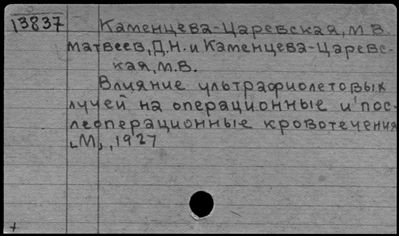 13837 Каменцева-Царевская, М.В.
Матвеев, Д.Н. и Каменцева-Царевс-
кая, М.В.
Влияние ультрафиолетовых
лучей на операционные и пос-
леоперационные кровотечения
М., 1927